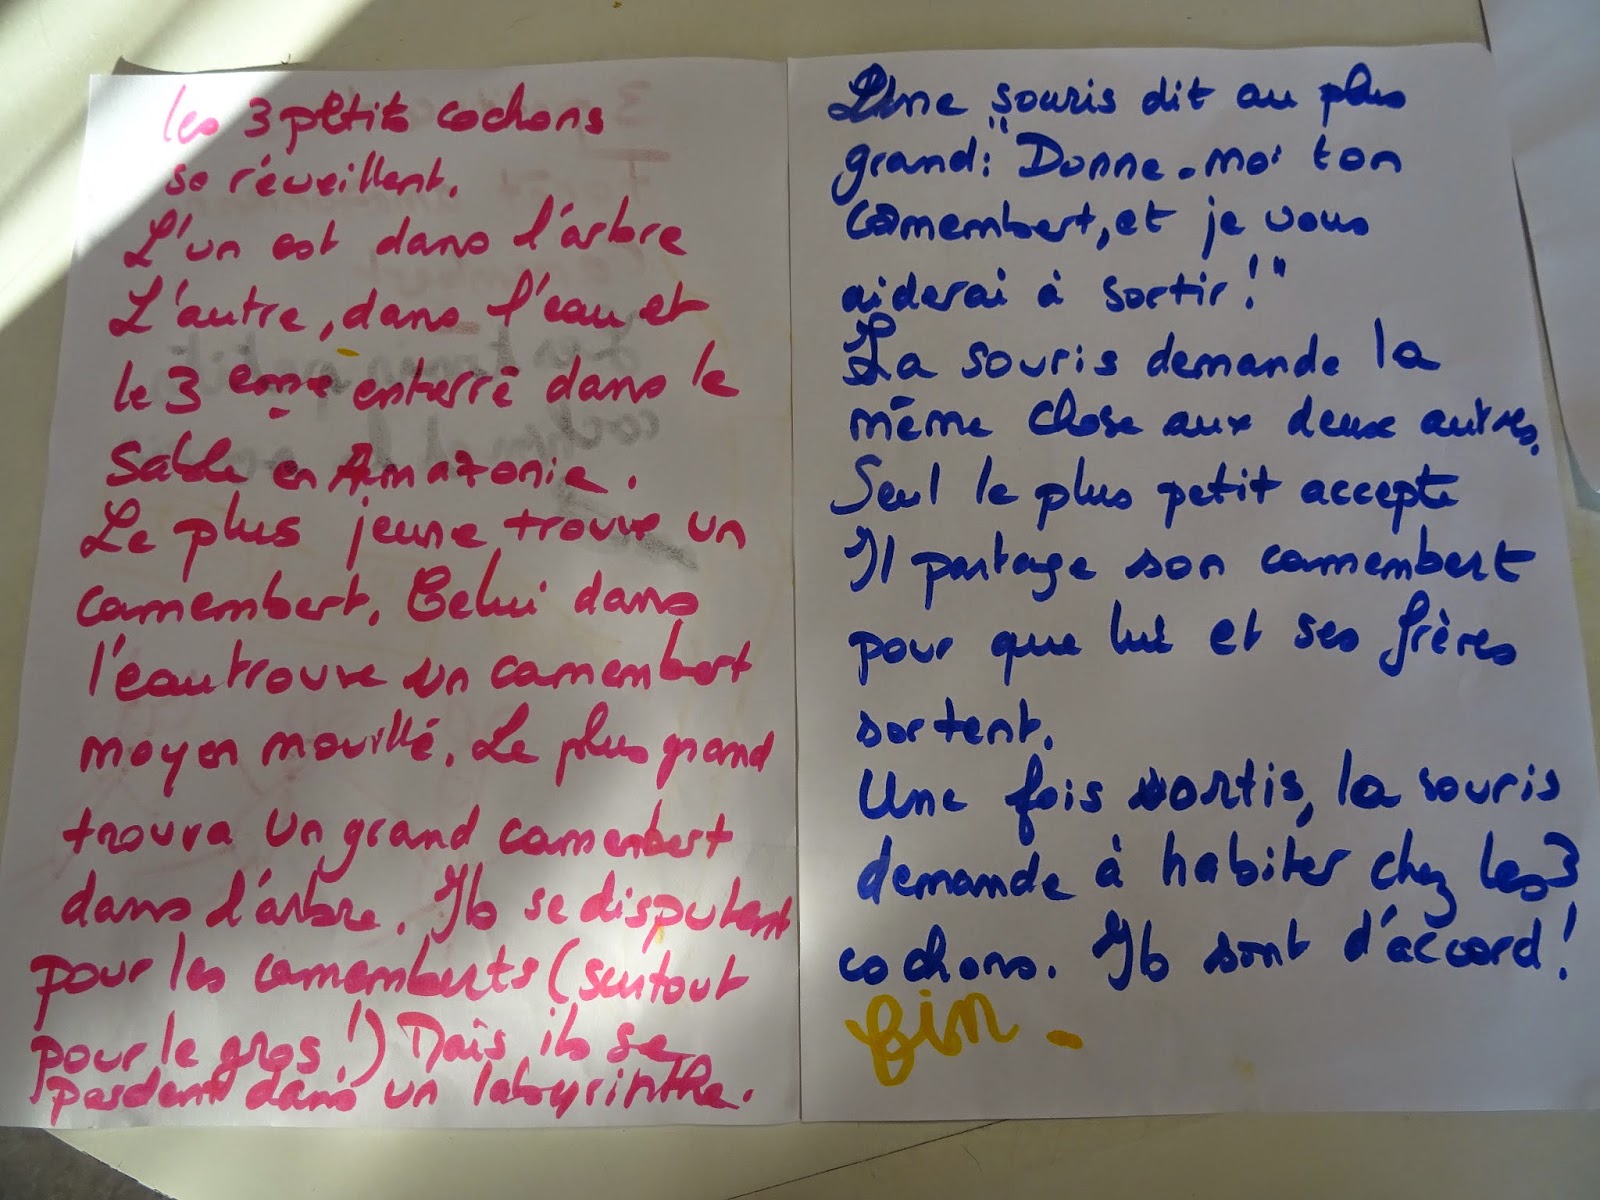 les 3 petits cochons
se réveillent.
L'un est dans l'arbre
L'autre, dans l'eau et
le 3 eme enterré dans le
sable en Amazonie.
Le plus jeune trouve un
camembert. Celui dans
l'eau trouve un camembert
moyen mouillé. Le plus grand
trouva un grand camembert
dans l'arbre. Ils se disputent
pour les camemberts (surtout
pour le gros !) Mais ils se
perdent dans un labyrinthe.
Une souris dit au plus
grand : "Donne-moi ton
camembert, et je vous
aiderai à sortir !"
La souris demande la
même chose aux deux autres.
Seul le plus petit accepte
Il partage son camembert
pour que lui et ses frères
sortent.
Une fois sortis, la souris
demande à habiter chez les 3
cochons. Ils sont d'accord !
fin -